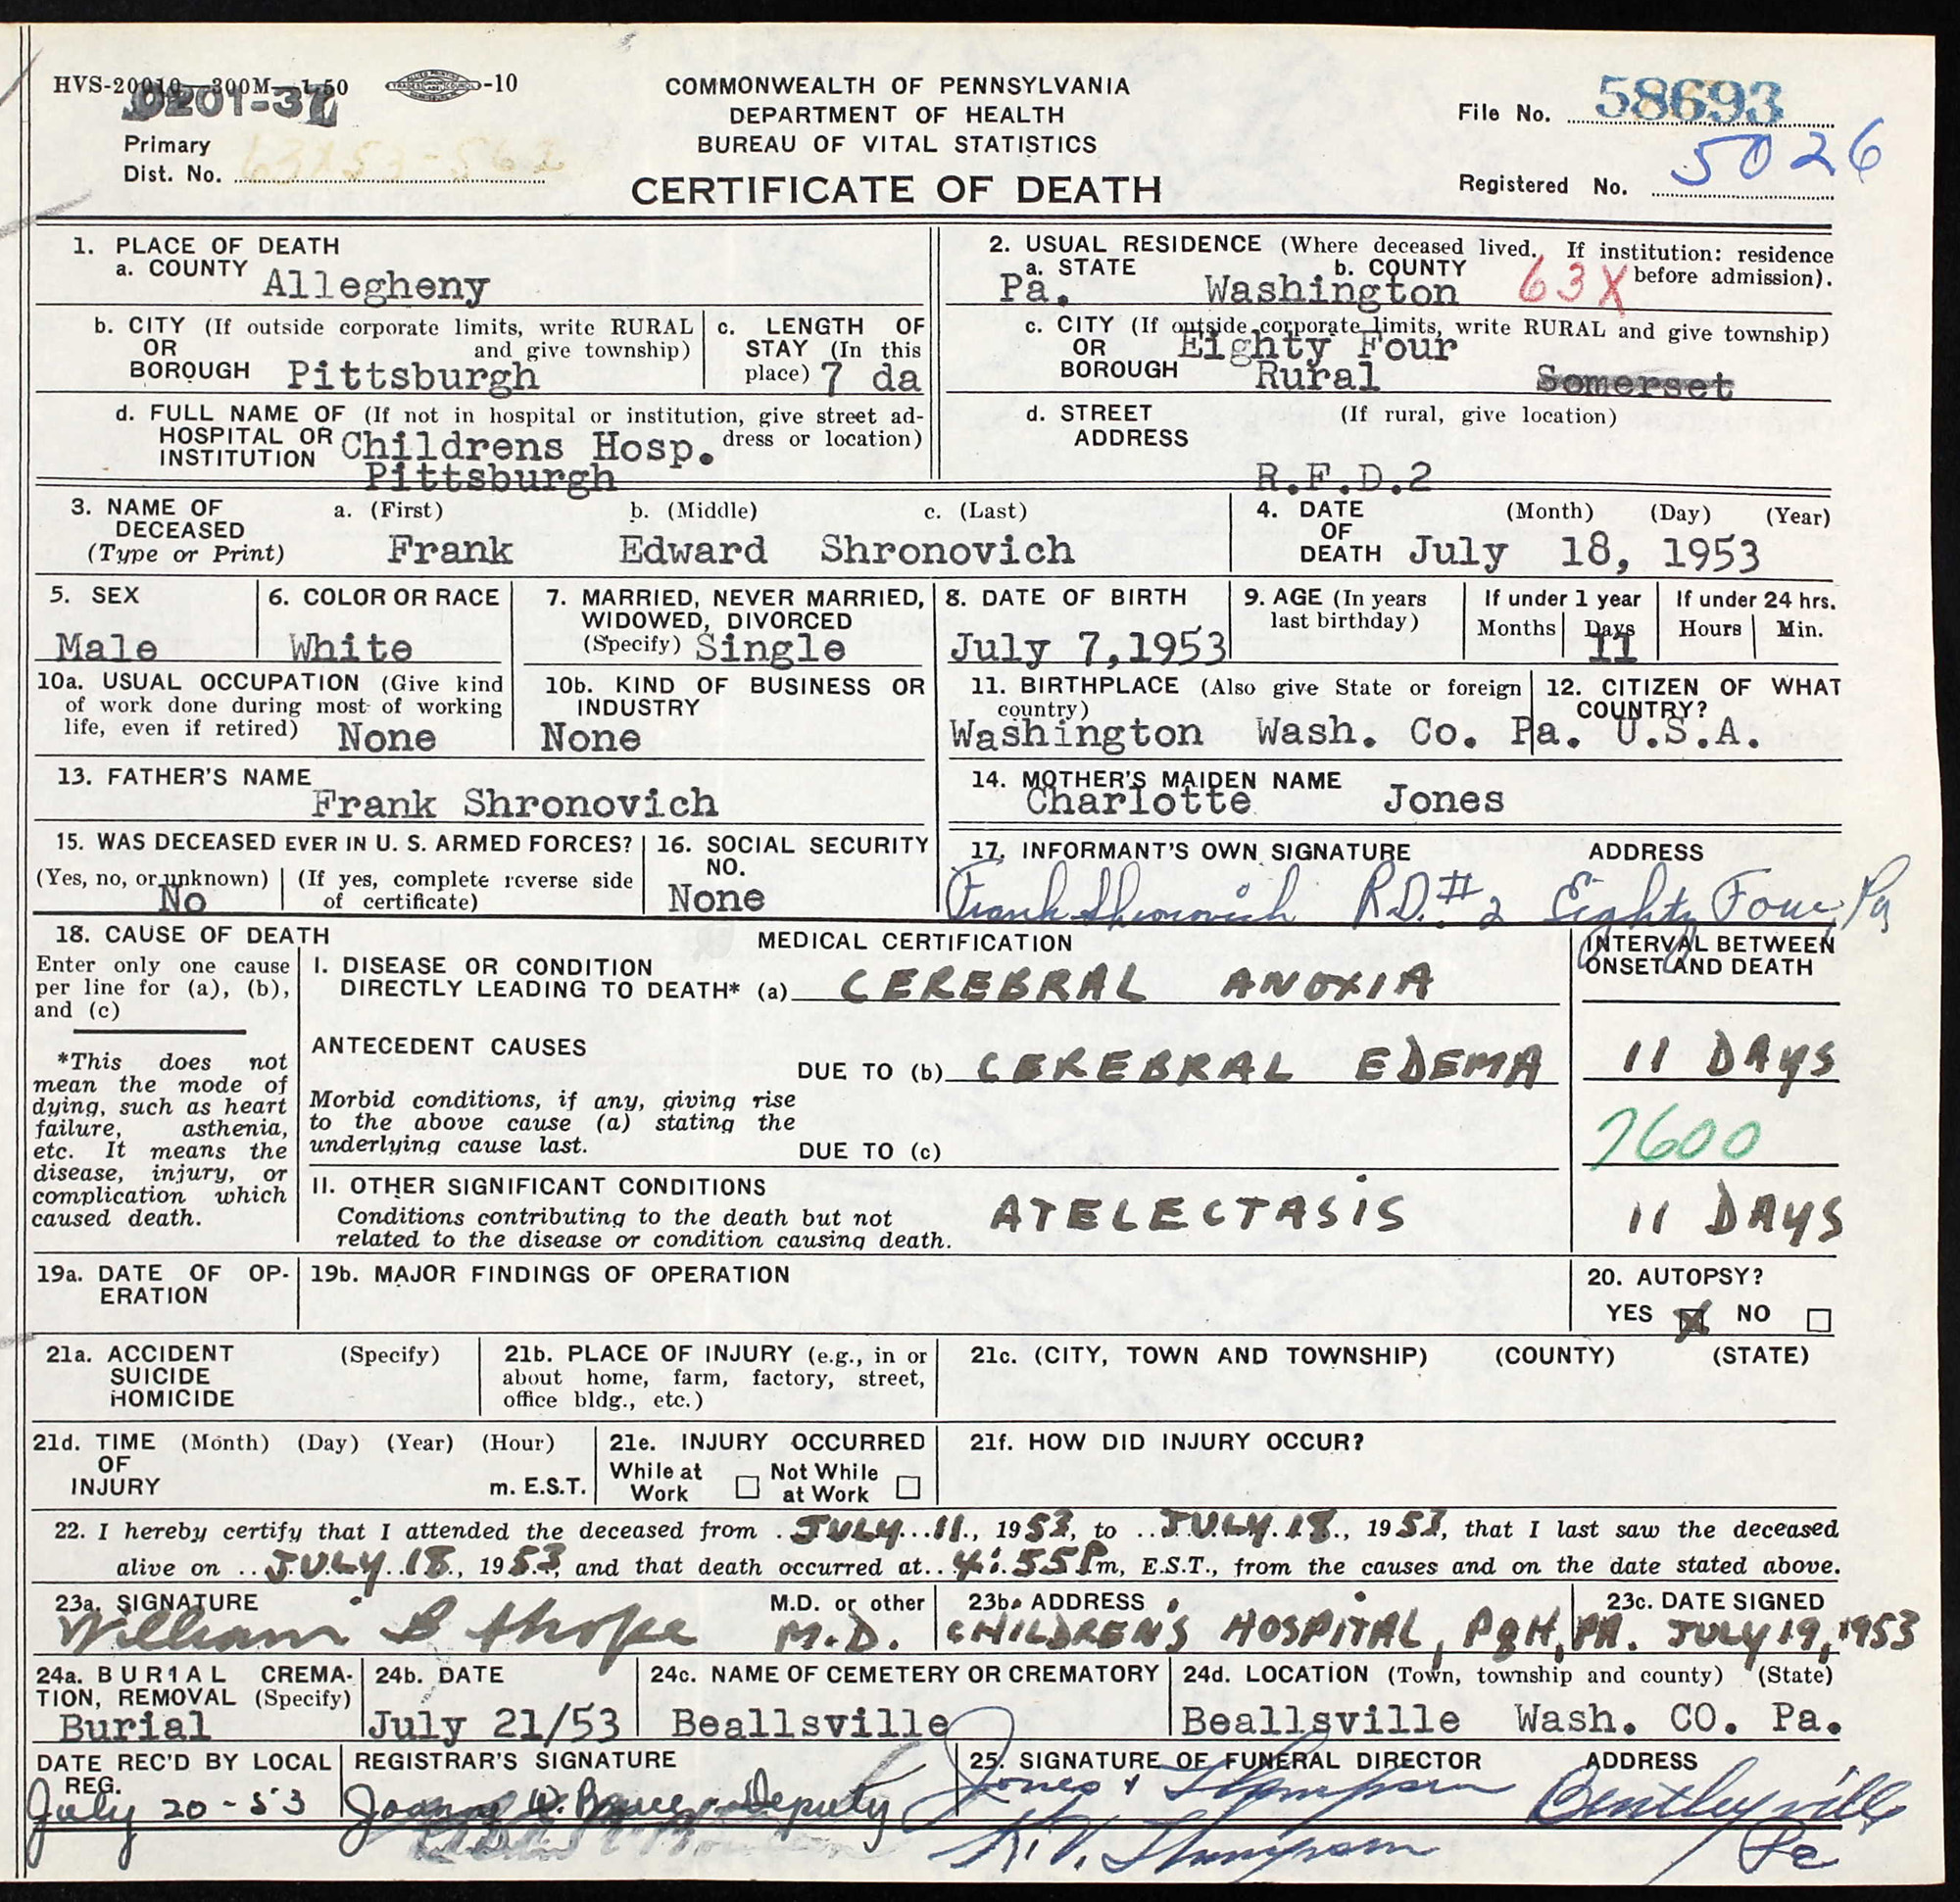 HVS-20010—300M—1-50 -10
0201-37
COMMONWEALTH OF PENNSYLVANIA
DEPARTMENT OF HEALTH
BUREAU OF VITAL STATISTICS
CERTIFICATE OF DEATH
File No. 58693
Registered No. 5026
Primary
Dist. No. 63X53-562
1. PLACE OF DEATH
a. COUNTY Allegheny
b. CITY (If outside corporate limits, write RURAL
OR and give township)
BOROUGH Pittsburgh
c. LENGTH OF
STAY (In this
place) 7 da
d. FULL NAME OF (If not in hospital or institution, give street ad-
HOSPITAL OR Childrens Hosp. dress or location)
INSTITUTION Pittsburgh
2. USUAL RESIDENCE (Where deceased lived. If institution: residence
a. STATE b. COUNTY 63X before admission).
Pa. Washington
c. CITY (If outside corporate limits, write RURAL and give township)
OR Eighty Four
BOROUGH Rural Somerset
d. STREET (If rural, give location)
ADDRESS
R.F.D.2
3. NAME OF a. (First) b. (Middle) c. (Last)
DECEASED
(Type or Print) Frank Edward Shronovich
4. DATE (Month) (Day) (Year)
OF
DEATH July 18, 1953
5. SEX
Male
6. COLOR OR RACE
White
7. MARRIED, NEVER MARRIED,
WIDOWED, DIVORCED
(Specify) Single
8. DATE OF BIRTH
July 7,1953
9. AGE (In years
last birthday)
If under 1 year
Months Days
11
If under 24 hrs.
Hours Min.
10a. USUAL OCCUPATION (Give kind
of work done during most of working
life, even if retired) None
10b. KIND OF BUSINESS OR
INDUSTRY
None
11. BIRTHPLACE (Also give State or foreign
country)
Washington Wash. Co. Pa.
12. CITIZEN OF WHAT
COUNTRY?
U.S.A.
13. FATHER'S NAME
Frank Shronovich
14. MOTHER'S MAIDEN NAME
Charlotte Jones
15. WAS DECEASED EVER IN U. S. ARMED FORCES?
(Yes, no, or unknown) (If yes, complete reverse side
No of certificate)
16. SOCIAL SECURITY
NO.
None
17. INFORMANT'S OWN SIGNATURE ADDRESS
Frank Shronovich R.D.#2 Eighty Four, Pa
18. CAUSE OF DEATH
Enter only one cause
per line for (a), (b),
and (c)
*This does not
mean the mode of
dying, such as heart
failure, asthenia,
etc. It means the
disease, injury, or
complication which
caused death.
MEDICAL CERTIFICATION
I. DISEASE OR CONDITION
DIRECTLY LEADING TO DEATH* (a) CEREBRAL ANOXIA
ANTECEDENT CAUSES
DUE TO (b) CEREBRAL EDEMA
Morbid conditions, if any, giving rise
to the above cause (a) stating the
underlying cause last.
DUE TO (c)
II. OTHER SIGNIFICANT CONDITIONS
Conditions contributing to the death but not ATELECTASIS
related to the disease or condition causing death.
INTERVAL BETWEEN
ONSET AND DEATH
11 DAYS
7600
11 DAYS
19a. DATE OF OP-
ERATION
19b. MAJOR FINDINGS OF OPERATION
20. AUTOPSY?
YES X NO
21a. ACCIDENT (Specify)
SUICIDE
HOMICIDE
21b. PLACE OF INJURY (e.g., in or
about home, farm, factory, street,
office bldg., etc.)
21c. (CITY, TOWN AND TOWNSHIP) (COUNTY) (STATE)
21d. TIME (Month) (Day) (Year) (Hour)
OF
INJURY m. E.S.T.
21e. INJURY OCCURRED
While at Not While
Work at Work
21f. HOW DID INJURY OCCUR?
22. I hereby certify that I attended the deceased from JULY 11, 1953, to JULY 18, 1953, that I last saw the deceased
alive on JULY 18, 1953, and that death occurred at 4:55 Pm, E.S.T., from the causes and on the date stated above.
23a. SIGNATURE M.D. or other
William B Thorpe M.D.
23b. ADDRESS
CHILDREN'S HOSPITAL, PGH, PA.
23c. DATE SIGNED
JULY 19, 1953
24a. BURIAL CREMA-
TION, REMOVAL (Specify)
Burial
24b. DATE
July 21/53
24c. NAME OF CEMETERY OR CREMATORY
Beallsville
24d. LOCATION (Town, township and county) (State)
Beallsville Wash. CO. Pa.
DATE REC'D BY LOCAL
REG.
July 20-53
REGISTRAR'S SIGNATURE
Deputy
25. SIGNATURE OF FUNERAL DIRECTOR ADDRESS
Jones & Thompson Bentleyville
Thompson Pa